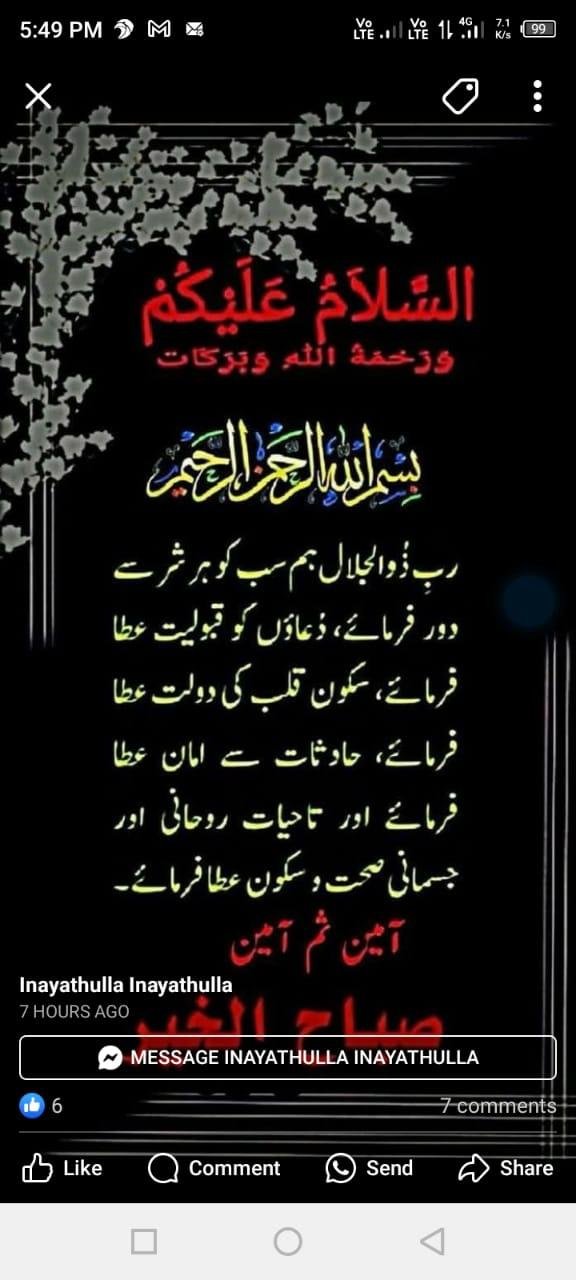 5:49 PM
Vo LTE Vo LTE 4G 7.1 K/s 99
السَّلاَمُ عَلَيْكُمْ
وَرَحْمَةُ اللهِ وَبَرَكَات
بسم الله الرحمن الرحيم
ربِ ذُوالجلال ہم سب کو ہر شر سے
دور فرمائے، دُعاؤں کو قبولیت عطا
فرمائے، سکون قلب کی دولت عطا
فرمائے، حادثات سے امان عطا
فرمائے اور تاحیات روحانی اور
جسمانی صحت و سکون عطا فرمائے۔
آمین ثم آمین
Inayathulla Inayathulla
7 HOURS AGO
صباح الخير
MESSAGE INAYATHULLA INAYATHULLA
6 7 comments
Like Comment Send Share